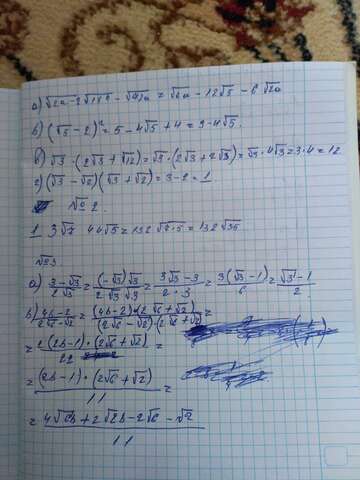 а) √2a - 2√18a - √72a = √2a - 12√5 - 6√2a
б) (√5 - 2)² = 5 - 4√5 + 4 = 9 - 4√5.
в) √3 · (2√3 + √12) = √3 · (2√3 + 2√3) = √3 · 4√3 = 3 · 4 = 12
г) (√3 - √2)(√3 + √2) = 3 - 2 = 1
№2.
1 3√7 44√5 = 132√7·5 = 132√35
№3
а) 3-√3 / 2√3 = (-√3)√3 / 2√3 √3 = 3√3 - 3 / 2·3 = 3(√3-1) / 6 = √3-1 / 2
b) 4b-2 / 2√6-√2 = (4b-2)·(2√6+√2) / (2√6-√2)·(2√6+√2) =
= 2(2b-1)·(2√6+√2) / 22 =
= (2b-1)·(2√6+√2) / 11 =
= 4√6b + 2√2b - 2√6 - √2 / 11